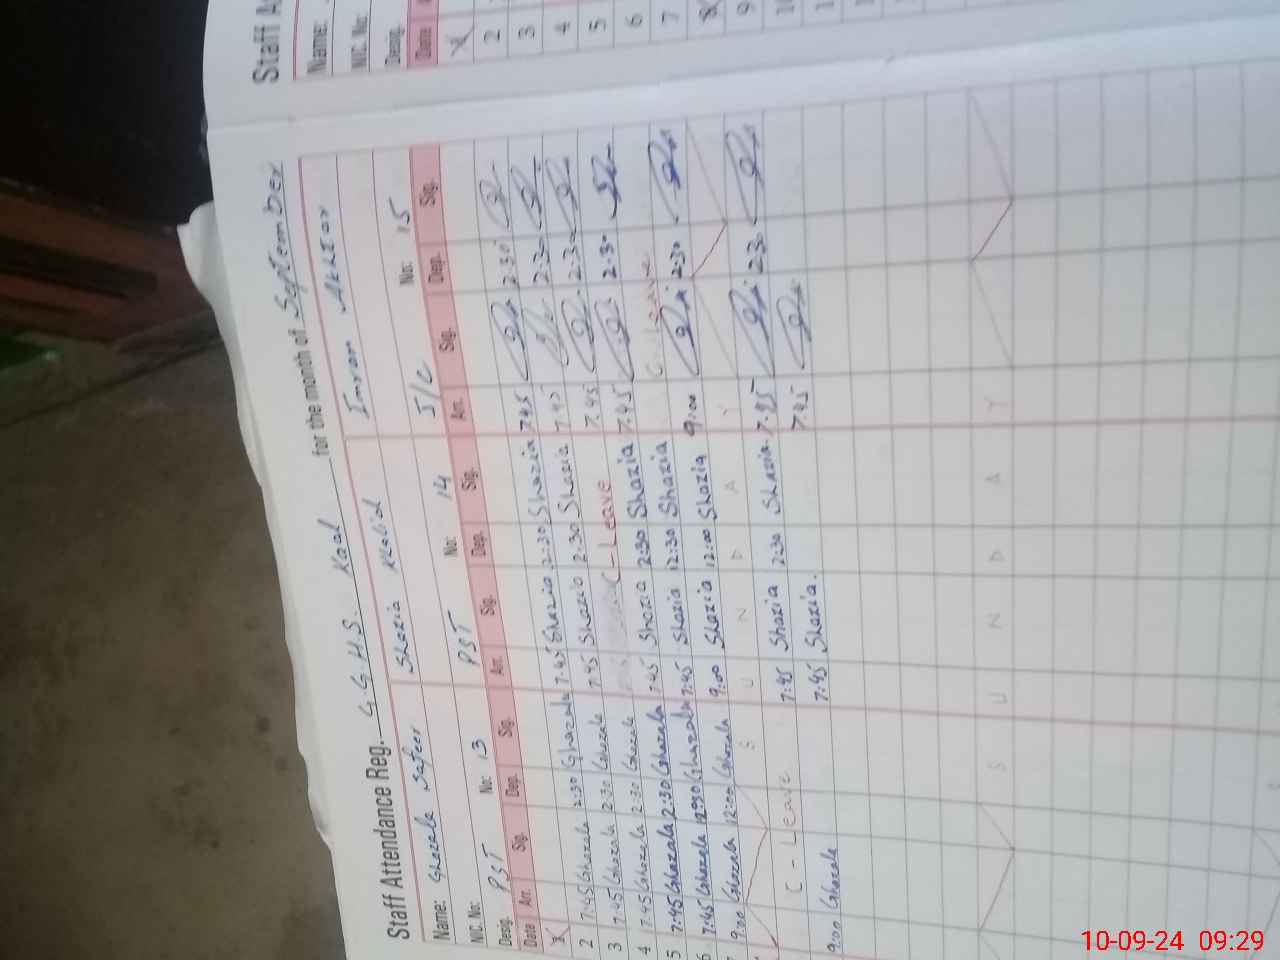 Staff Attendance Reg. G.G.H.S. Kaal for the month of September
Name: Ghazala Safeer Shazia Khalid Imran Akhtar
NIC. No: No: 13 No: 14 No: 15
Desig. PST PST J/C
Date Arr. Sig. Dep. Sig. Arr. Sig. Dep. Sig. Arr. Sig. Dep. Sig.
1
2 7:45 Ghazala 2:30 Ghazala 7:45 Shazia 2:30 Shazia 7:45 2:30
3 7:45 Ghazala 2:30 Ghazala 7:45 Shazia 2:30 Shazia 7:45 2:30
4 7:45 Ghazala 2:30 Ghazala C - Leave 7:45 2:30
5 7:45 Ghazala 2:30 Ghazala 7:45 Shazia 2:30 Shazia 7:45 2:30
6 7:45 Ghazala 12:30 Ghazala 7:45 Shazia 12:30 Shazia C - Leave
7 9:00 Ghazala 12:00 Ghazala 9:00 Shazia 12:00 Shazia 9:00 2:30
S U N D A Y
C - Leave 7:45 Shazia 2:30 Shazia 7:45 2:30
9:00 Ghazala 7:45 Shazia. 7:45
S U N D A Y
Name:
NIC. No:
Desig.
Date
2
3
4
5
6
7
8
9
10-09-24 09:29